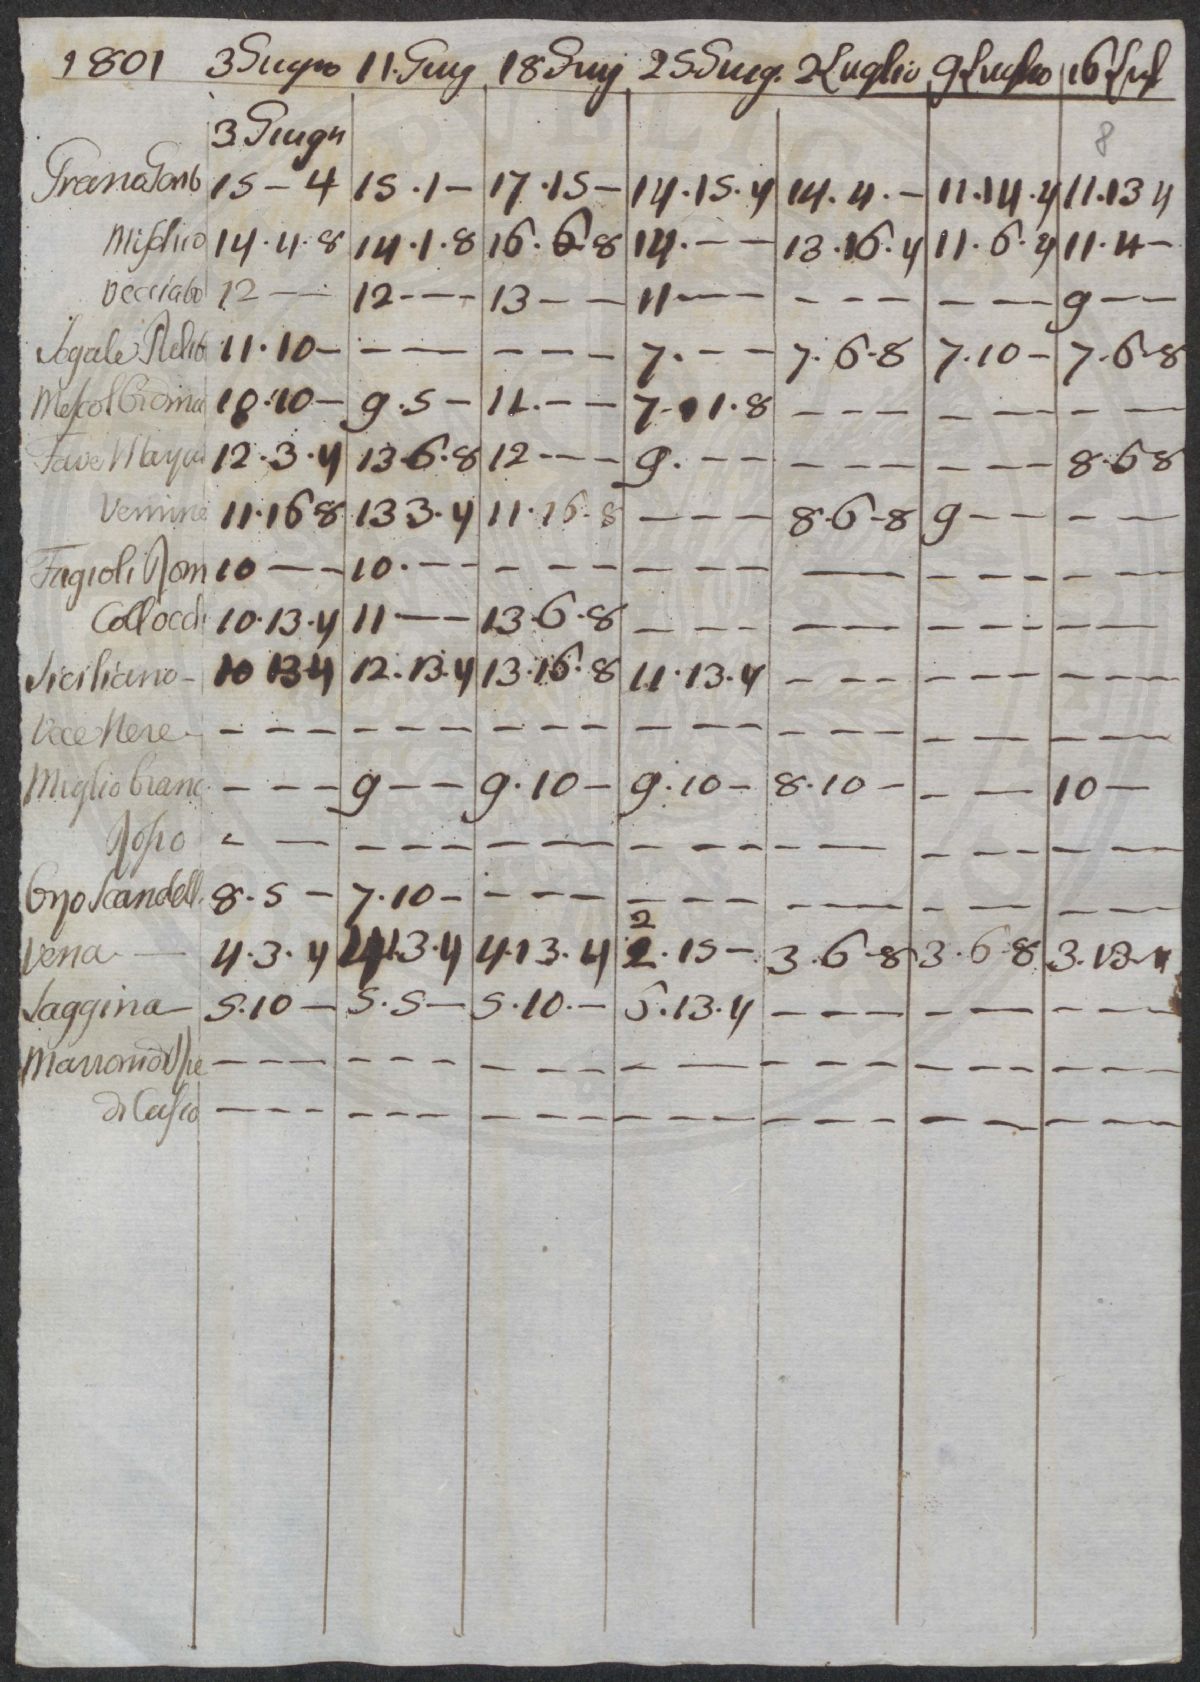 1801 3 Giugno 11. Giug 18 Giug 25 Giug. 2 Luglio 9 Luglio 16 Lugl
3 Giugn 8
Grano Gent 15 – 4 15 . 1 – 17 . 15 – 14 . 15 . 4 14 . 4 . – 11 . 14 . 4 11 . 13 4
Mischio 14 . 4 . 8 14 . 1 . 8 16 . 6 . 8 14 . – – 13 . 16 . 4 11 . 6 . 4 11 . 4 –
Vecciato 12 – – 12 – – – 13 – – 11 – – – – – – – – – 9 – –
Segale 11 . 10 – – – – – – – 7 . – – 7 . 6 . 8 7 . 10 – 7 . 6 . 8
Mescol 10 . 10 – 9 . 5 – 11 . – – 7 – 11 . 8 – – – – – – – – –
Fave 12 . 3 . 4 13 6 . 8 12 – – – 9 . – – – – – – – – 8 . 6 8
Vernine 11 . 16 8 13 3 . 4 11 . 16 . 8 – – – 8 . 6 – 8 9 – – – – –
Fagioli Rom 10 – – 10 . – – – – – – – – — — – – – – – –
Coll'occh 10 . 13 . 4 11 – – – 13 . 6 . 8 – – – — — – – – – – –
Siciliano – 10 13 4 12 . 13 . 4 13 . 16 . 8 11 . 13 . 4 – – – – – – – – –
Vece Nere – – – – – – – – – – – – – – – – – – – – – –
Miglio bianc – – – 9 – – 9 . 10 – 9 . 10 – 8 . 10 – – – – 10 –
Rosso – – – – – – – – – – – – – – – – – – – –
Orzo Scandell. 8 . 5 – 7 . 10 – – – – – – – – – – – – – – – –
2
Vena – 4 . 3 . 4 4 13 . 4 4 . 13 . 4 2 . 15 – 3 . 6 – 8 3 . 6 . 8 3 . 13 . 4
Saggina – 5 . 10 – 5 . 5 – 5 . 10 . – 5 . 13 . 4 – – – – – – – – –
– – – – – – – – – – – – – – – – – – – – –
– – – – – – – – – – – – – – – – – – – – –